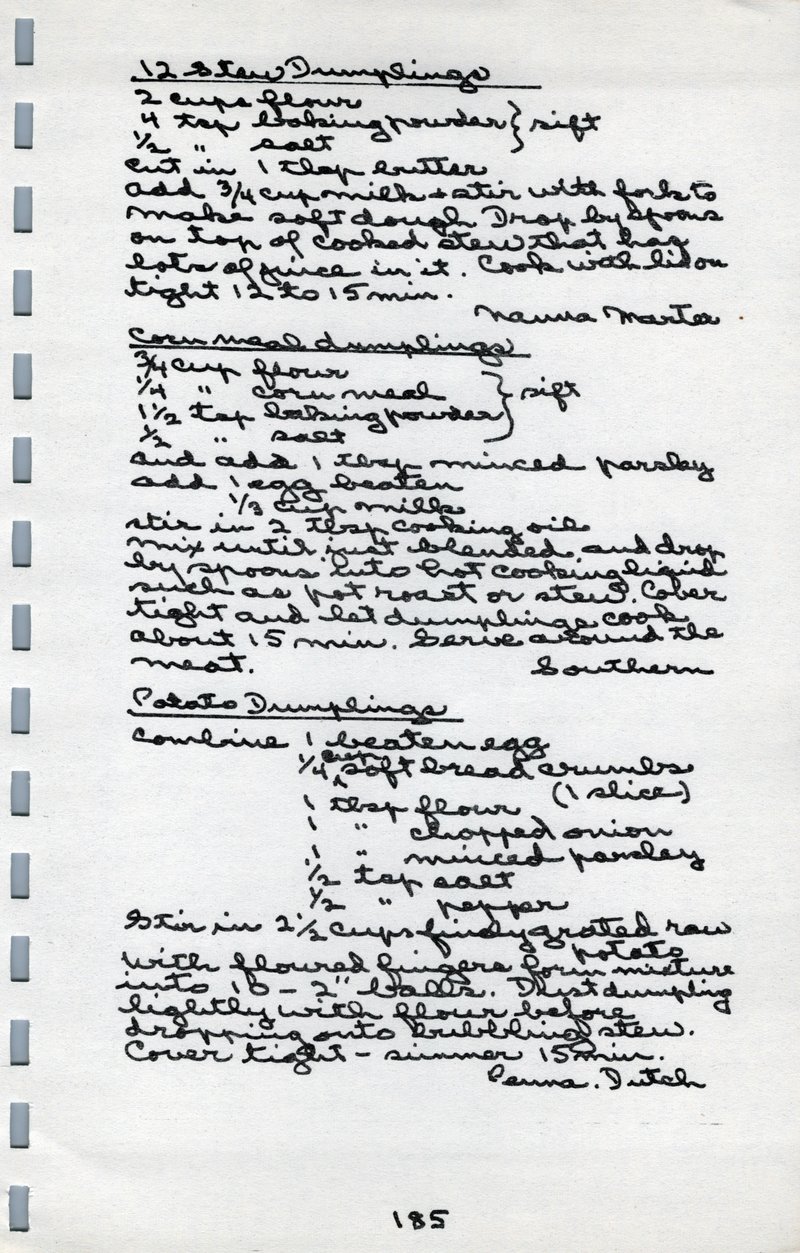 12 Stew Dumplings
2 cups flour
4 tsp baking powder } sift
1/2 " salt
cut in 1 tbsp butter
add 3/4 cup milk + stir with fork to
make soft dough Drop by spoons
on top of cooked stew that has
lots of juice in it. Cook with lid on
tight 12 to 15 min.
Nanna Marter
Corn meal dumplings
3/4 cup flour
1/4 " corn meal } sift
1 1/2 tsp baking powder
1/2 " salt
and add 1 tbsp minced parsley
add 1 egg beaten
1/3 cup milk
stir in 2 tbsp cooking oil
mix until just blended and drop
by spoons into hot cooking liquid
such as pot roast or stew. Cover
tight and let dumplings cook
about 15 min. Serve around the
meat. Southern
Potato Dumplings
Combine 1 beaten egg
1/4 cup soft bread crumbs
(1 slice)
1 tbsp flour
1 " chopped onion
1 " minced parsley
1/2 tsp salt
1/2 " pepper
Stir in 2 1/2 cups finely grated raw
potato
With floured fingers form mixture
into 10 - 2" balls. Dust dumpling
lightly with flour before
dropping onto bubbling stew.
Cover tight - simmer 15 min.
Penna. Dutch
185